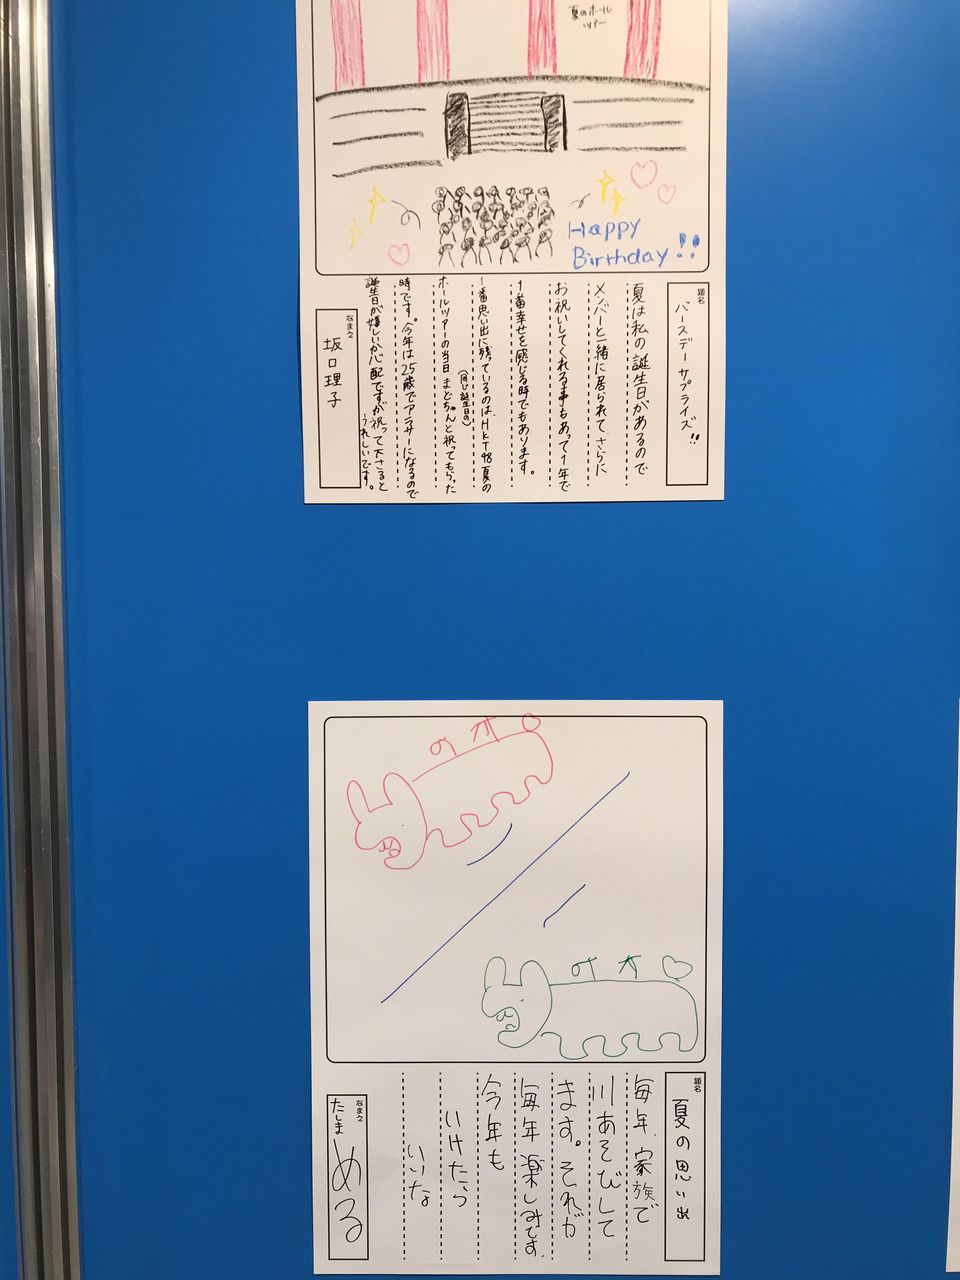 夏のホール
ツアー
Happy
Birthday!!
題名
バースデーサプライズ!!
夏は私の誕生日があるので
メンバーと一緒に居られて、さらに
お祝いしてくれる事もあって1年で
1番幸せを感じる時でもあります。
1番思い出に残っているのは、HKT48夏の
(同じ誕生日の)
ホールツアーの当日まどちゃんと祝ってもらった
時です。今年は25歳でアラサーになるので
誕生日が嬉しいか心配ですが祝って下さると
うれしいです。
なまえ
坂口理子
題名
夏の思い出
毎年、家族で
川あそびして
ます。それが
毎年楽しみです。
今年も
いけたら
いいな
なまえ
たしまめる